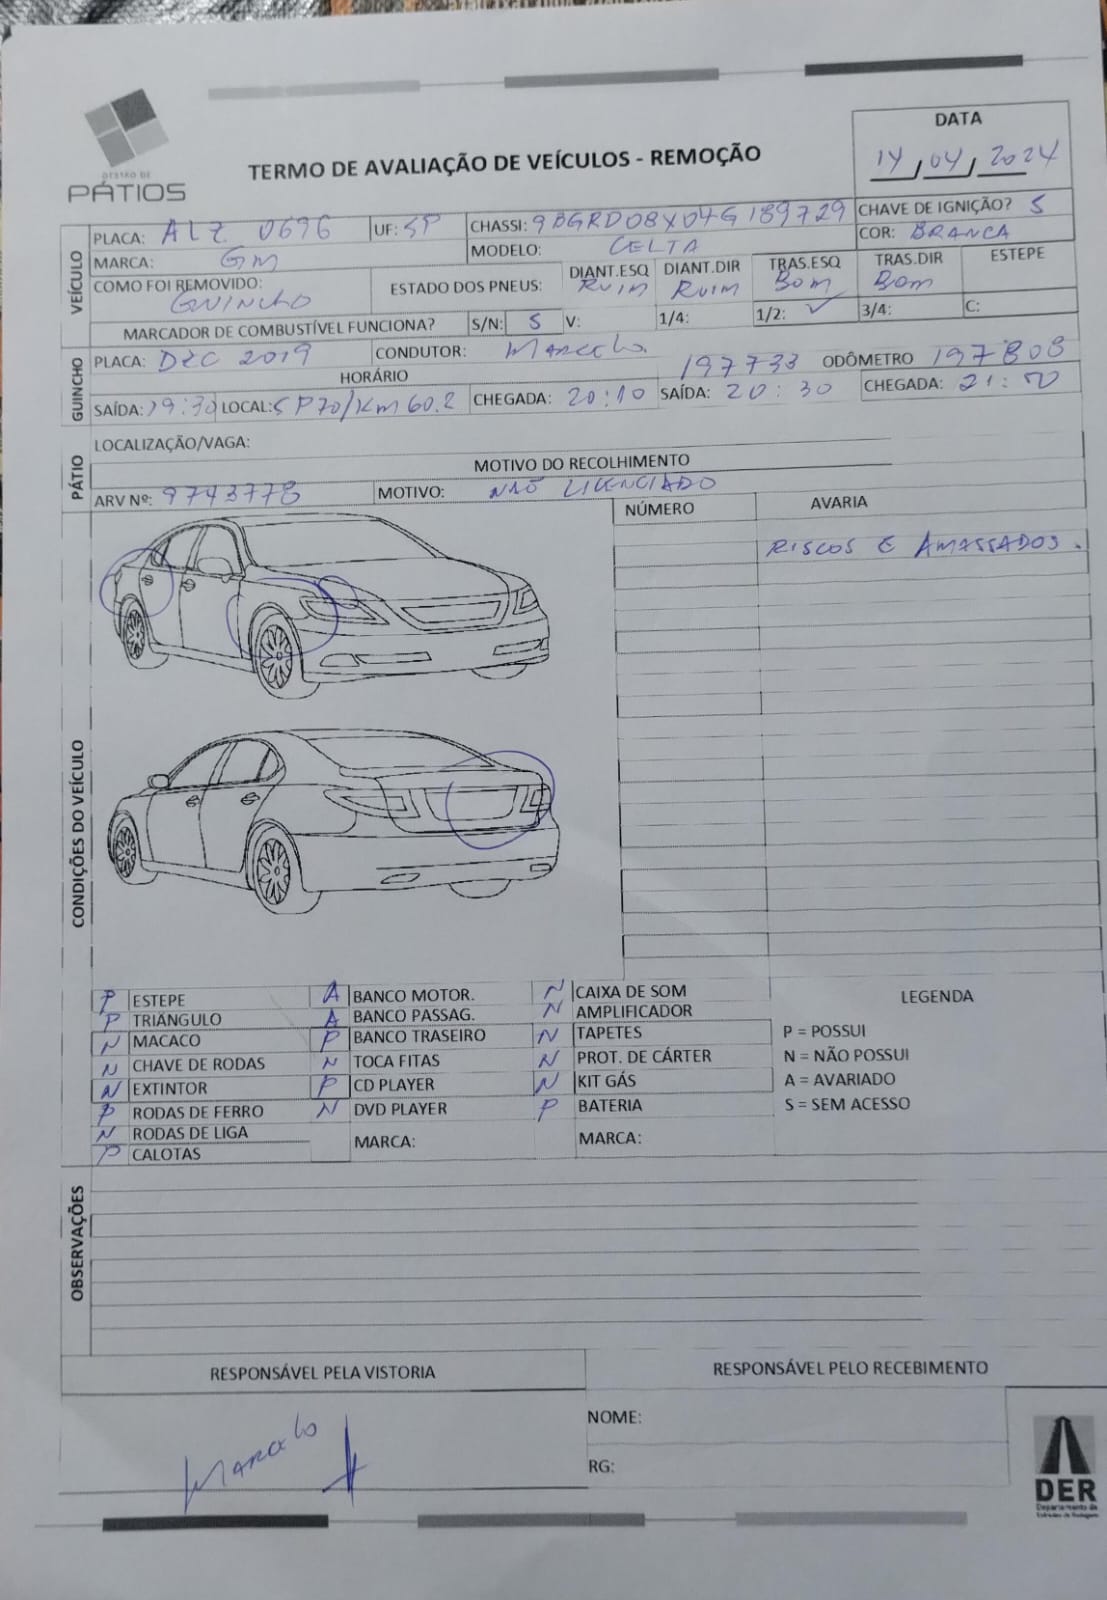 GESTÃO DE
PÁTIOS
TERMO DE AVALIAÇÃO DE VEÍCULOS - REMOÇÃO
DATA
14/04/2024
VEÍCULO
PLACA: ALZ 0696 UF: SP CHASSI: 9BGRD08X04G189729 CHAVE DE IGNIÇÃO? S
MARCA: GM MODELO: CELTA COR: BRANCA
COMO FOI REMOVIDO: GUINCHO ESTADO DOS PNEUS: DIANT.ESQ RUIM DIANT.DIR RUIM TRAS.ESQ BOM TRAS.DIR BOM ESTEPE
MARCADOR DE COMBUSTÍVEL FUNCIONA? S/N: S V: 1/4: 1/2: ✓ 3/4: C:
GUINCHO
PLACA: DEC 2019 CONDUTOR: Marcelo. 197733 ODÔMETRO 197808
HORÁRIO
SAÍDA: 19:30 LOCAL: SP70/KM 60.2 CHEGADA: 20:10 SAÍDA: 20:30 CHEGADA: 21:
PÁTIO
LOCALIZAÇÃO/VAGA:
MOTIVO DO RECOLHIMENTO
ARV Nº: 9743778 MOTIVO: NÃO LICENCIADO
CONDIÇÕES DO VEÍCULO
NÚMERO AVARIA
RISCOS E AMASSADOS.
P ESTEPE A BANCO MOTOR. N CAIXA DE SOM LEGENDA
P TRIÂNGULO A BANCO PASSAG. N AMPLIFICADOR
N MACACO P BANCO TRASEIRO N TAPETES P = POSSUI
N CHAVE DE RODAS N TOCA FITAS N PROT. DE CÁRTER N = NÃO POSSUI
N EXTINTOR P CD PLAYER N KIT GÁS A = AVARIADO
P RODAS DE FERRO N DVD PLAYER P BATERIA S = SEM ACESSO
N RODAS DE LIGA MARCA: MARCA:
P CALOTAS
OBSERVAÇÕES
RESPONSÁVEL PELA VISTORIA RESPONSÁVEL PELO RECEBIMENTO
Marcelo
NOME:
RG:
DER
Departamento de
Estradas de Rodagem